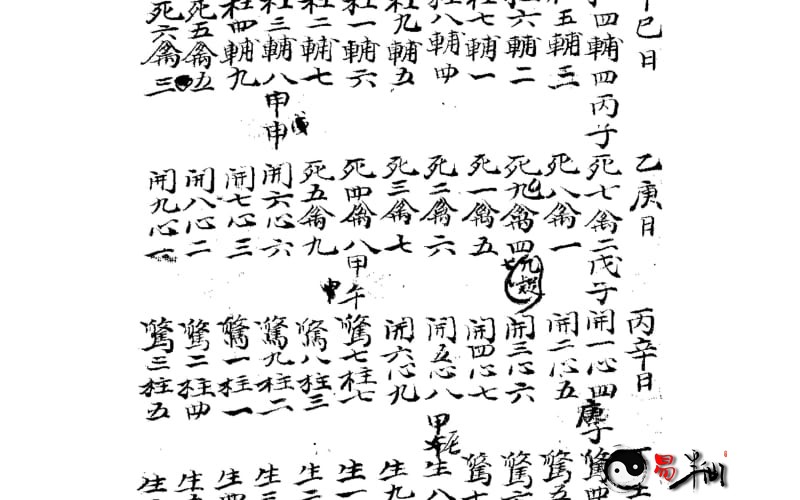 巳日
四輔四丙子
五輔三
六輔二
柱七輔一
柱八輔四
柱九輔五
柱一輔六
柱二輔七
柱三輔八甲申
柱四輔九
死五禽五
死六禽三
乙庚日
死七禽二戊子
死八禽一
死九禽四
死一禽五
死二禽六
死三禽七
死四禽八甲午
死五禽九
開六心六
開七心三
開八心二
開九心一
丙辛日
開一心四庚子
開二心五
開三心六
開四心七
開五心八甲
開六心九
驚七柱七
驚八柱三
驚九柱二
驚一柱一
驚二柱四
驚三柱五
驚
驚
驚
生八
生九
生一
生二
生三
生四
生
易半仙